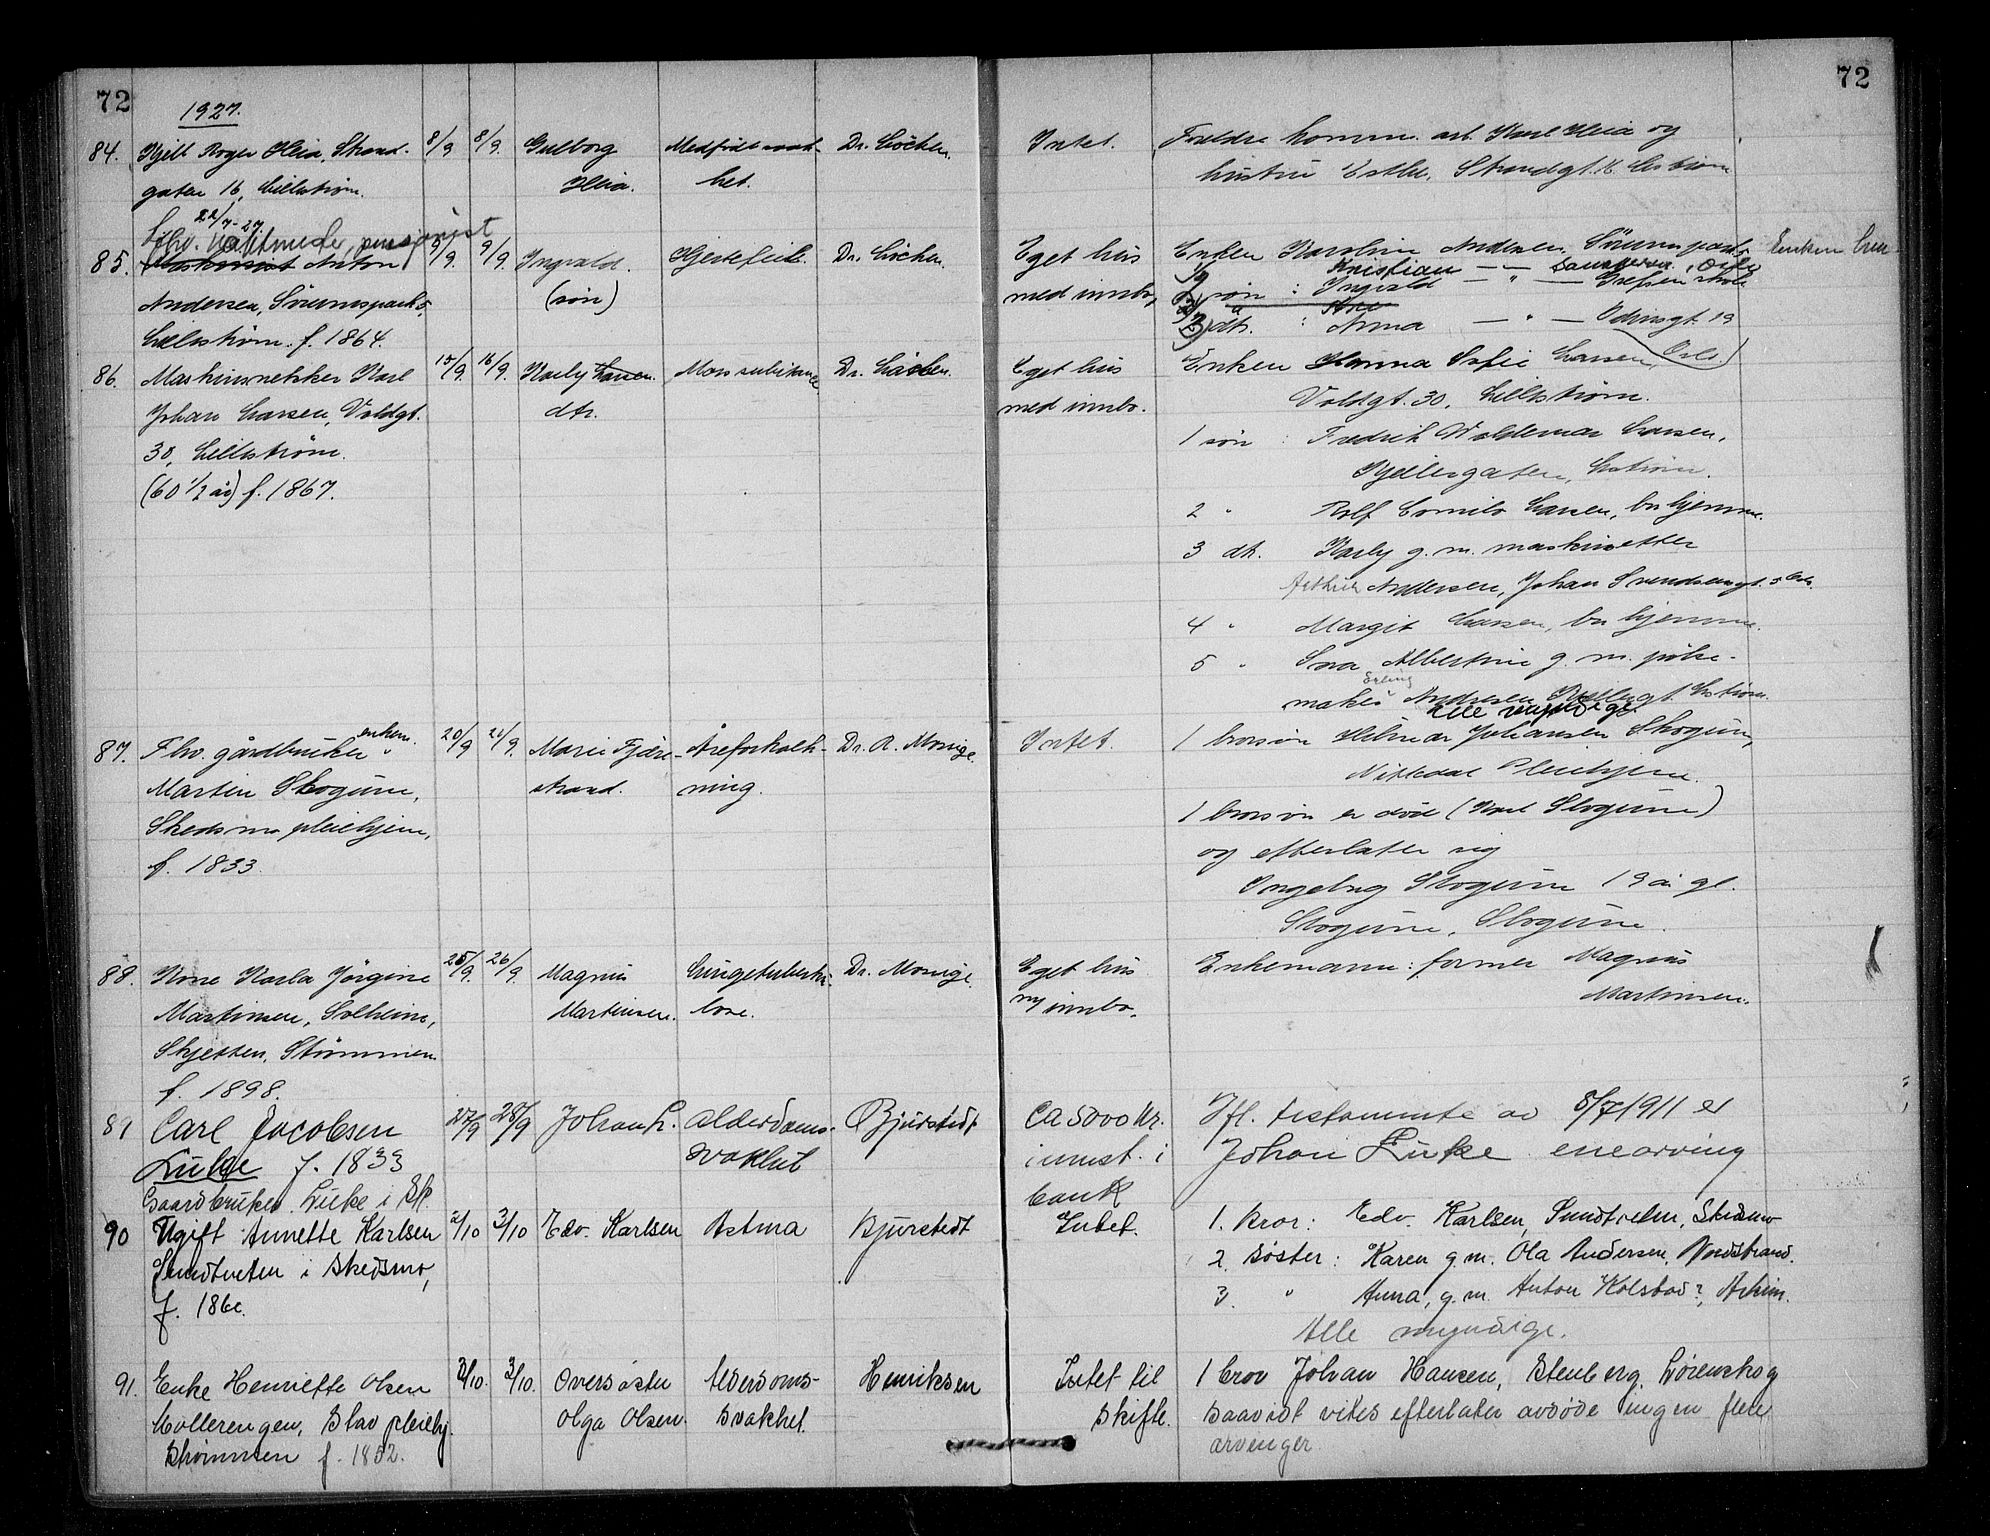 72
72
1927.
84. Kjell Roger Heia, Strand-
gaten 16, Lillestrøm.
22/7-27
8/9 8/9 Gulborg
Heia.
Medfødt svak-
het.
Dr. Løchen.
Intet.
Foreldre komm. arb. Karl Heia og
hustru Esther, Strandgt. 16 Lstrøm
fhv. vaktmester, pensjonist
85. Maskinist Anton
Andersen, Sørumspark 5,
Lillestrøm. f. 1864.
9/9 9/9. Ingvald.
(søn)
Hjertefeil.
Dr. Løchen.
Eget hus
med innbo,
Enken Karoline Andersen, Sørumspark 5
Kristian — " — Oslo
søn : Ingvald — " — Grefsen
3) dtr. : Anna — " — Odinsgt 19
Oslo
Enken
86. Maskinsnekker Karl
Johan Larsen, Voldgt.
30, Lillestrøm.
(60 1/2 år) f. 1867.
15/9. 16/9. Karly Larsen.
dtr.
Mors subitanea
Dr. Løchen.
Eget hus
med innbo.
Enken Hanna Sofie Larsen,
Voldgt. 30, Lillestrøm.
1 søn : Fredrik Waldemar Larsen,
Kjellergaten, Lstrøm.
2 " Rolf Larsen, bor hjemme.
3 dtr. Karly g. m. maskinsetter
Arthur Andersen, Johan Svendsensgt. 5 Oslo.
4 " Margit Larsen, bor hjemme.
5 " Albertine g. m. pølse-
Erling
maker Andresen Lstrøm.
Alle myndige.
87. Fhv. gårdbruker enkem.
Martin Skogum,
Skedsmo pleiehjem,
f. 1833.
20/9 21/9. Marie Fjære-
strand.
Åreforkalk-
ning.
Dr. A. Monige.
Intet.
1 brorsøn Hilmar Johansen Skogum,
Nittedal Pleiehjem.
1 brorsøn er død (Karl Skogum)
og efterlater sig
Ingeborg Skogum 19 år gl.
Skogum, Skogum.
88. Kone Karla Jørgine
Martinsen, Solheim,
Skjetten, Strømmen
f. 1898.
25/9. 26/9. Magnus
Martinsen.
Lungetuberku-
lose.
Dr. Monige.
Eget hus
m/ innbo.
Enkemann: former Magnus
Martinsen.
89 Carl Jacobsen
Luke f. 1833
Gaardbruker Luke i Sk.
27/9 28/9 Johan L.
Alderdoms-
svakhet
Bjurstedt
Ca 5000 kr.
innest. i
bank
Ifl. testamente av 8/7 1911 er
Johan Luke enearving
90 Ugift Annette Karlsen
Sundtveten i Skedsmo,
f. 186
2/10 3/10 Edv. Karlsen
Astma
Bjurstedt
Intet.
1. Bror: Edv. Karlsen, Sundtveten, Skedsmo
2. Søster: Karen g. m. Ola Andersen, Nordstrand.
3. " Anna, g. m. Anton Kolstad?, Askim.
Alle myndige.
91. Enke Henriette Olsen
Mollerengen, Blav pleiehj.
Strømmen f. 1852.
2/10. 3/10. Oversøster
Olga Olsen.
Alderdoms-
svakhet.
Henriksen
Intet til
skifte.
1 bror Johan Hansen, Stenberg, Lørenskog
Saavidt vites efterlater avdøde ingen flere
arvinger